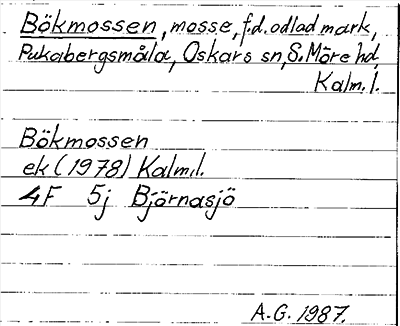 Bökmossen, mosse, f.d. odlad mark,
Pukabergsmåla, Oskars sn, S. Möre hd,
Kalm. l.
Bökmossen
ek (1978) Kalm.l.
4F 5j Björnasjö
A.G. 1987.